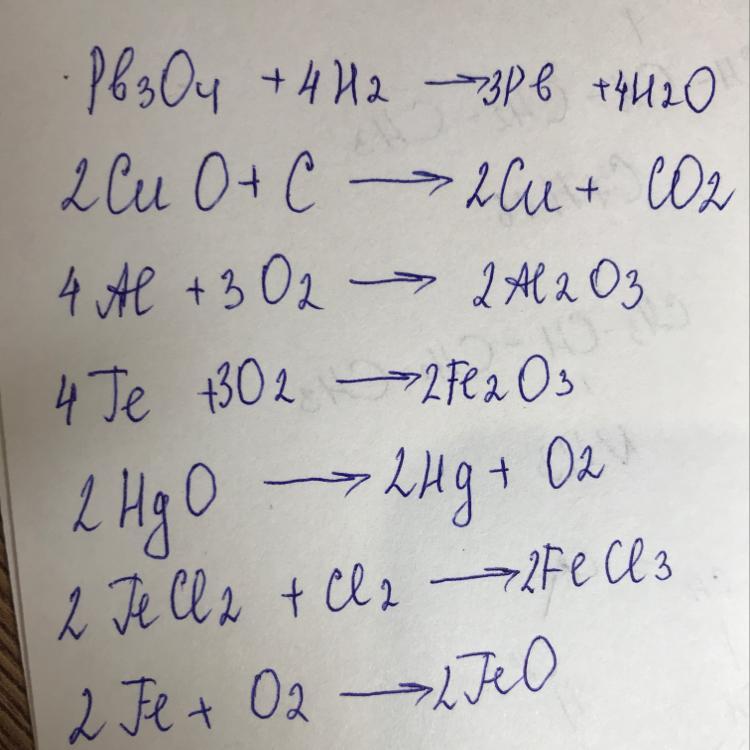 Pb3O4 + 4H2 → 3Pb + 4H2O
2CuO + C → 2Cu + CO2
4Al + 3O2 → 2Al2O3
4Fe + 3O2 → 2Fe2O3
2HgO → 2Hg + O2
2FeCl2 + Cl2 → 2FeCl3
2Fe + O2 → 2FeO